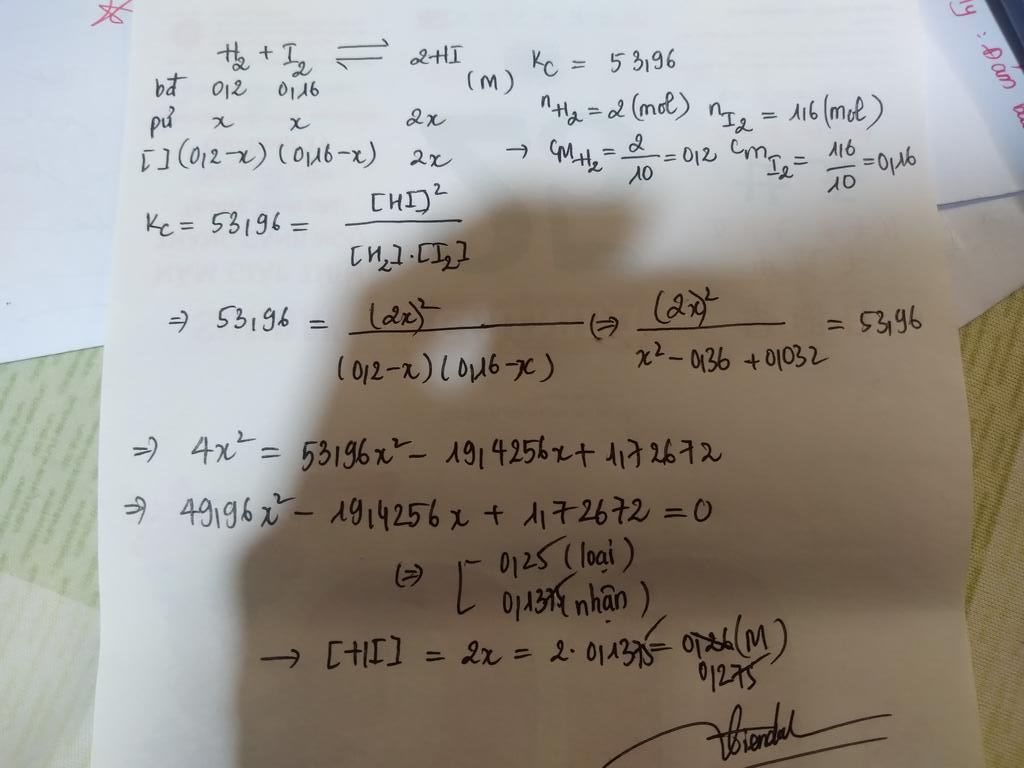 H₂ + I₂ ⇌ 2HI (M) K_C = 53,96
bđ 0,2 0,16
n_H₂ = 2 (mol) n_I₂ = 1,6 (mol)
pứ x x 2x
[ ] (0,2-x) (0,16-x) 2x → C_M H₂ = 2/10 = 0,2 C_M I₂ = 1,6/10 = 0,16
K_C = 53,96 = [HI]² / [H₂].[I₂]
⇒ 53,96 = (2x)² / (0,2-x)(0,16-x) (⇒ (2x)² / x² - 0,36 + 0,032 = 53,96
⇒ 4x² = 53,96x² - 19,4256x + 1,72672
⇒ 49,96x² - 19,4256x + 1,72672 = 0
(⇒) [ 0,25 (loại)
0,137 (nhận)
→ [HI] = 2x = 2. 0,1375 = 0,26 (M)
0,275